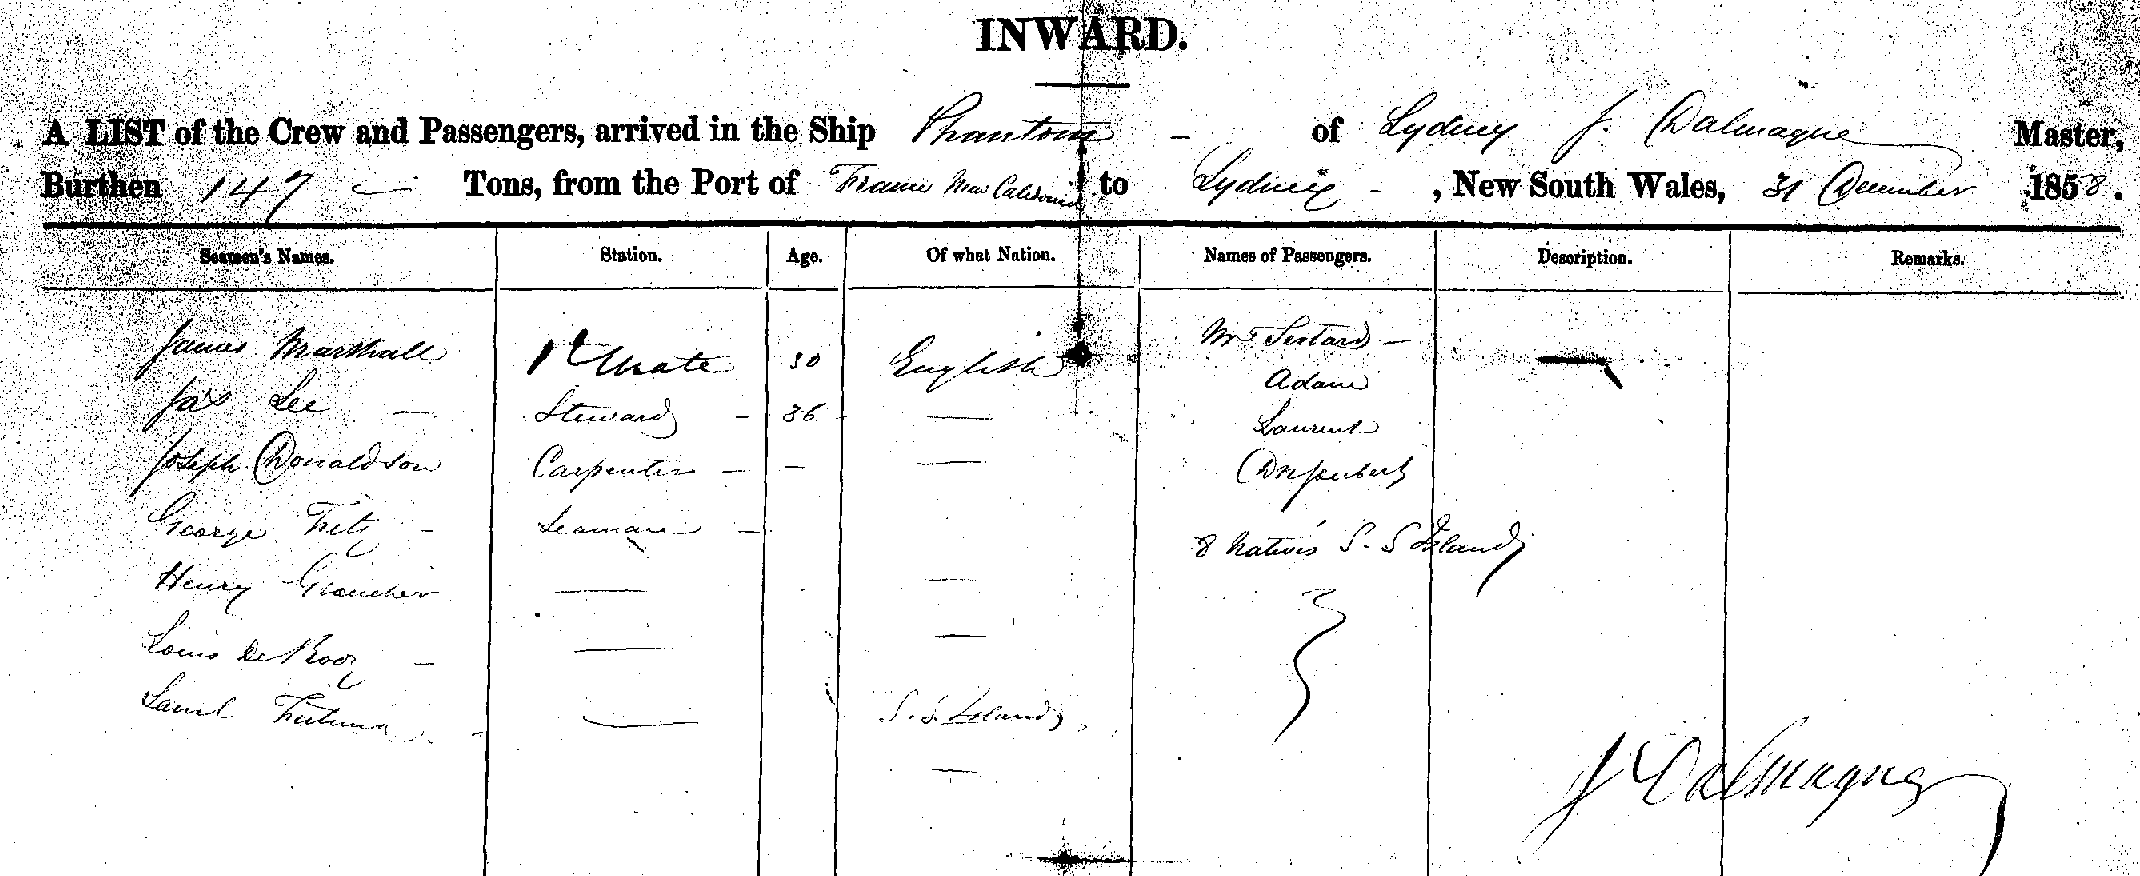 INWARD.
A LIST of the Crew and Passengers, arrived in the Ship Phantom - of Sydney J. Dalmagne Master,
Burthen 147 Tons, from the Port of to Sydney - , New South Wales, 31 December 1858.
Seamen's Names. Station. Age. Of what Nation. Names of Passengers. Description. Remarks.
James Marshall 1st Mate 30 English Mr
Jas Lee — Steward - 36 — Adam
Joseph Donaldson Carpenter - - — Laurent
George - Seaman -
8 Natives S. S Islands
Henry — —
Louis — —
Saml — S. S. Islands
—
J Dalmagne